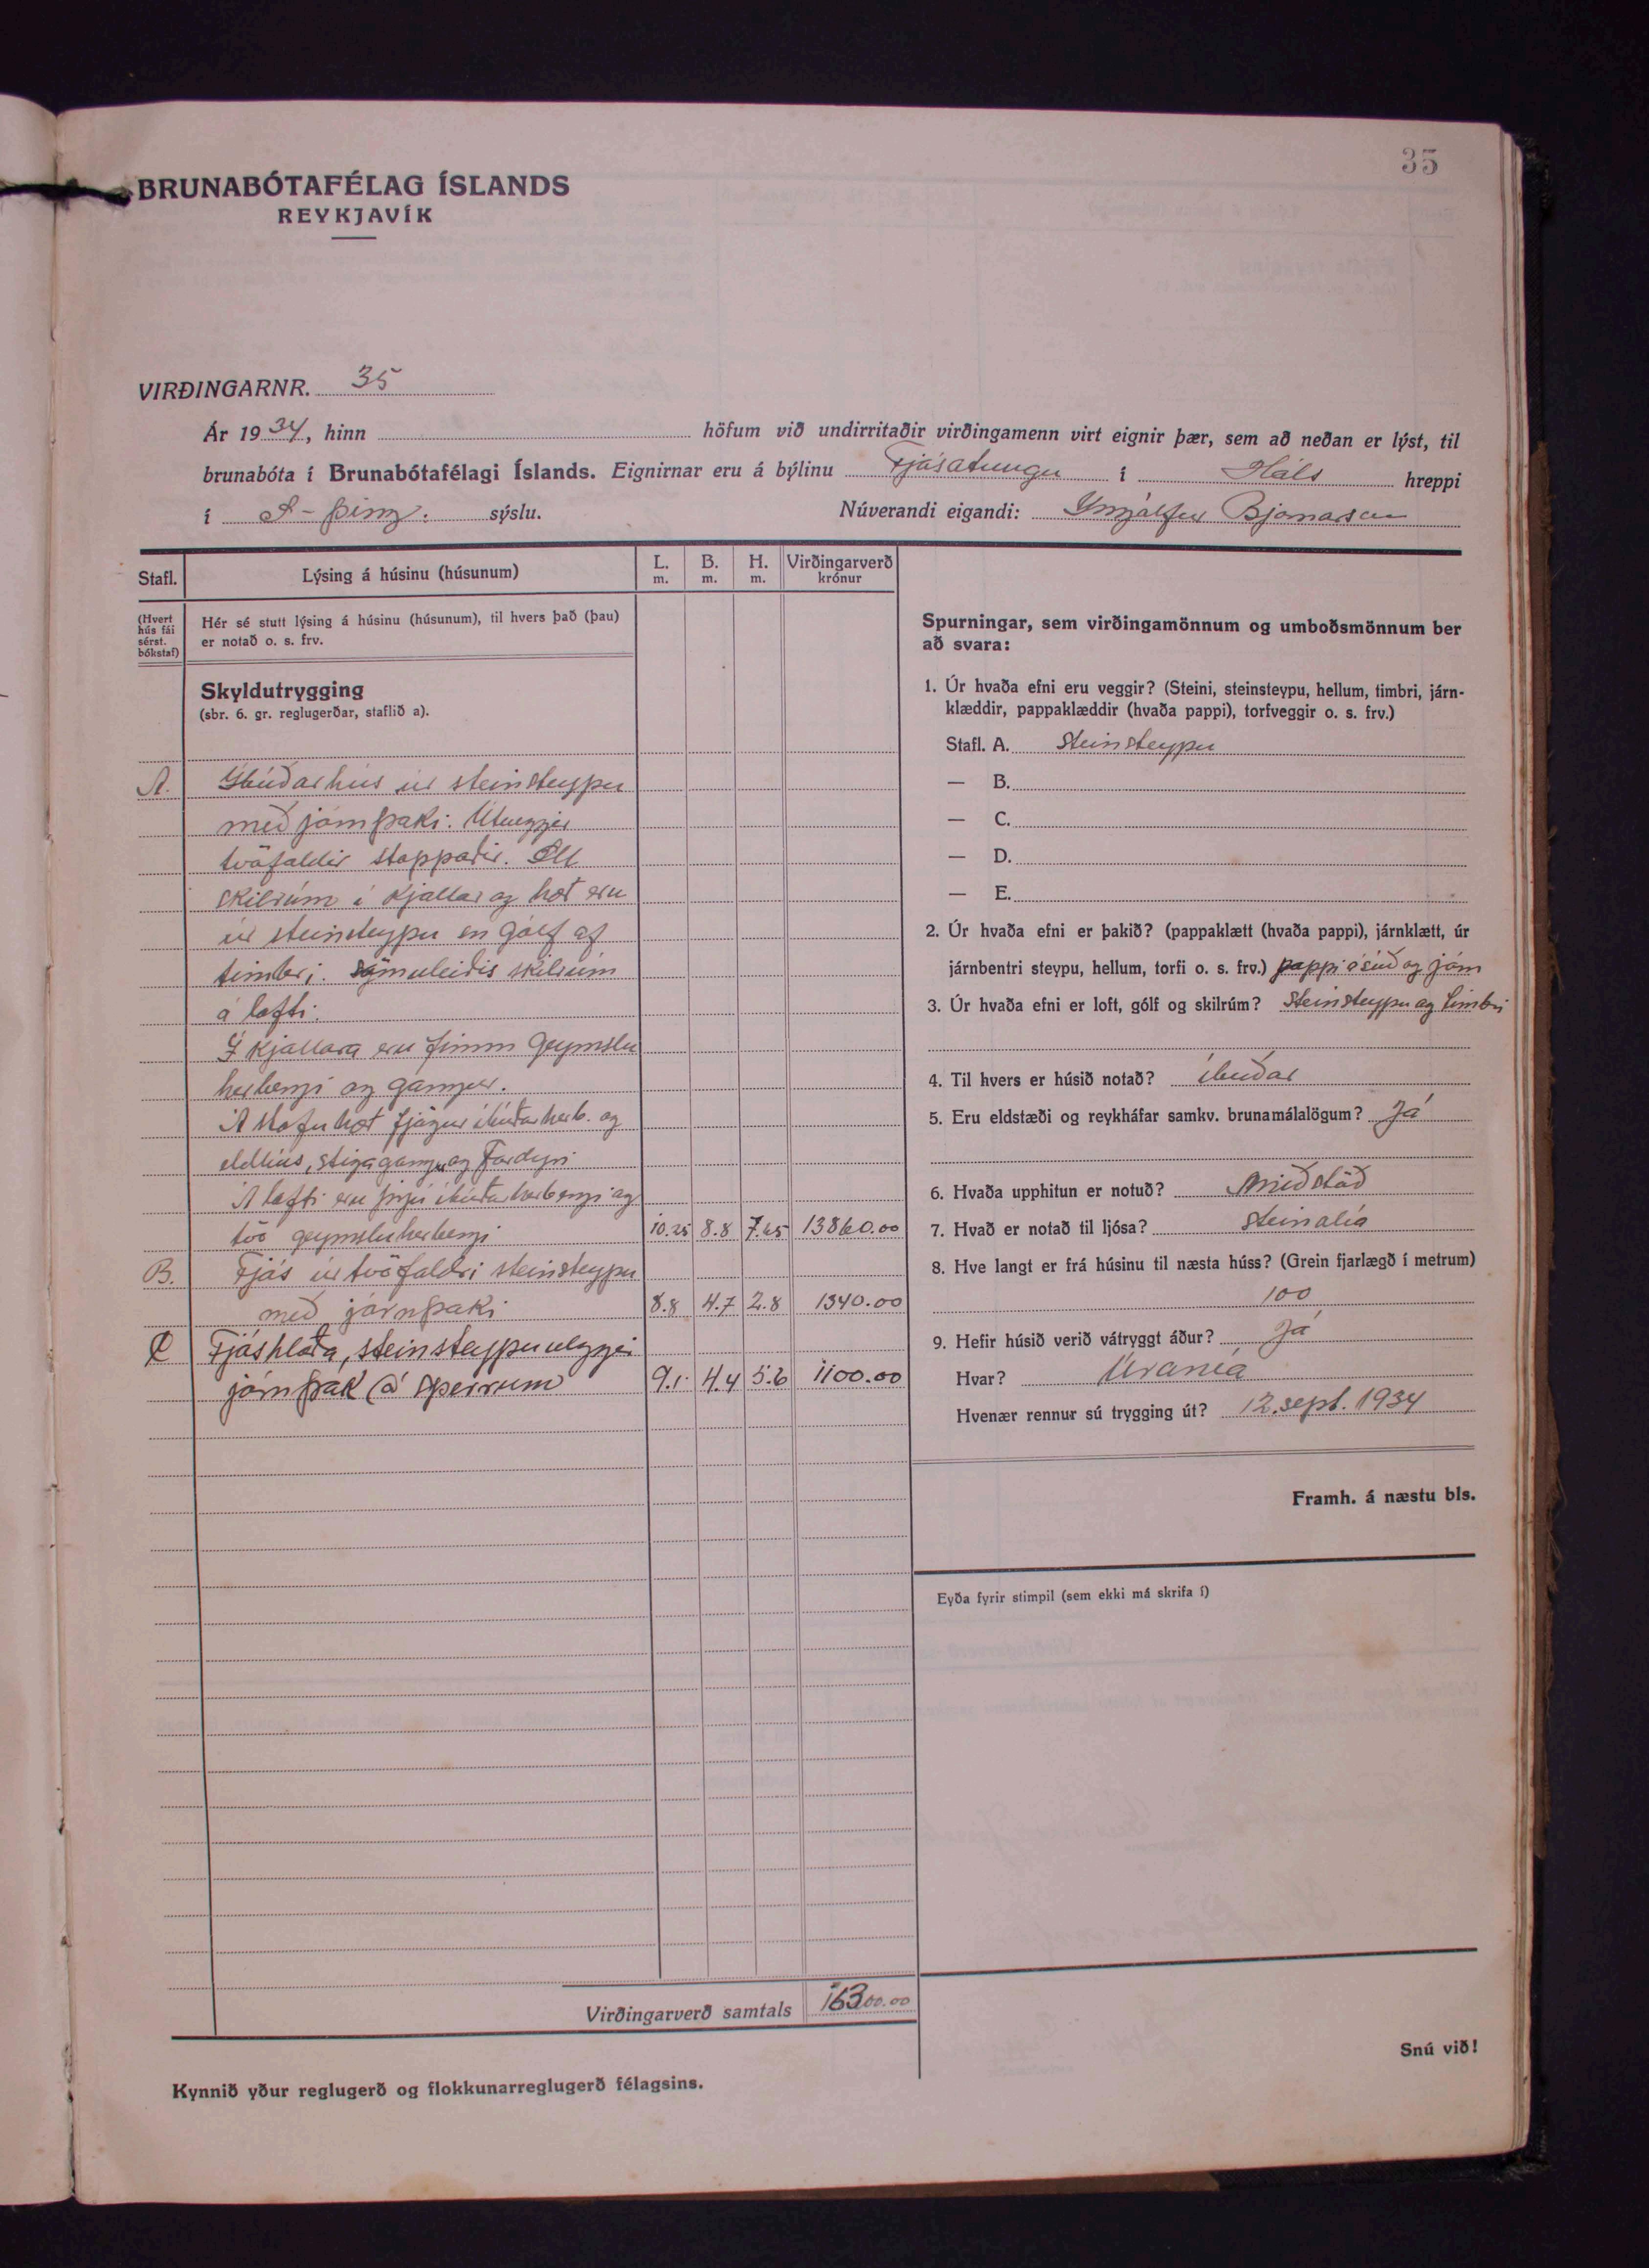 35
BRUNABÓTAFÉLAG ÍSLANDS
REYKJAVÍK
VIRÐINGARNR. 35
Ár 1934, hinn höfum við undirritaðir virðingamenn virt eignir þær, sem að neðan er lýst, til
brunabóta í Brunabótafélagi Íslands. Eignirnar eru á býlinu Fjósatungu í Háls hreppi
í S-þing. sýslu. Núverandi eigandi: Ingólfur Bjarnason
Stafl.
Lýsing á húsinu (húsunum)
L. m.
B. m.
H. m.
Virðingarverð krónur
(Hvert hús fái sérst. bókstaf)
Hér sé stutt lýsing á húsinu (húsunum), til hvers það (þau)
er notað o. s. frv.
Skyldutrygging
(sbr. 6. gr. reglugerðar, staflið a).
A. Íbúðarhús úr steinsteypu
með járnþaki. Útveggir
tvöfaldir stoppaðir. Öll
skilrúm í kjallar og hæð eru
úr steinsteypu en gólf af
timbri. sömuleiðis skilrúm
á lofti.
Í kjallara eru fimm geymslu
herbergi og gangur.
Á stofuhæð fjögur íbúðarherb. og
eldhús, stigagangur og Fordyri
Á lofti eru þrjú íbúðarherbergi og
tvö geymsluherbergi 10.25 8.8 7.65 13860.00
B. Fjós úr tvöfaldri steinsteypu
með járnþaki 8.8 4.7 2.8 1340.00
C Fjóshlaða, steinsteypuveggir
járnþak á sperrum 9.1 4.4 5.6 1100.00
Virðingarverð samtals 16300.00
Kynnið yður reglugerð og flokkunarreglugerð félagsins.
Spurningar, sem virðingamönnum og umboðsmönnum ber
að svara:
1. Úr hvaða efni eru veggir? (Steini, steinsteypu, hellum, timbri, járn-
klæddir, pappaklæddir (hvaða pappi), torfveggir o. s. frv.)
Stafl. A. Steinsteypu
— B.
— C.
— D.
— E.
2. Úr hvaða efni er þakið? (pappaklætt (hvaða pappi), járnklætt, úr
járnbentri steypu, hellum, torfi o. s. frv.) pappi á súð og járn
3. Úr hvaða efni er loft, gólf og skilrúm? Steinsteypu og timbri
4. Til hvers er húsið notað? íbúðar
5. Eru eldstæði og reykháfar samkv. brunamálalögum? Já
6. Hvaða upphitun er notuð? Miðstöð
7. Hvað er notað til ljósa? Steinolía
8. Hve langt er frá húsinu til næsta húss? (Grein fjarlægð í metrum)
100
9. Hefir húsið verið vátryggt áður? Já
Hvar? Úranía
Hvenær rennur sú trygging út? 12. sept. 1934
Framh. á næstu bls.
Eyða fyrir stimpil (sem ekki má skrifa í)
Snú við!